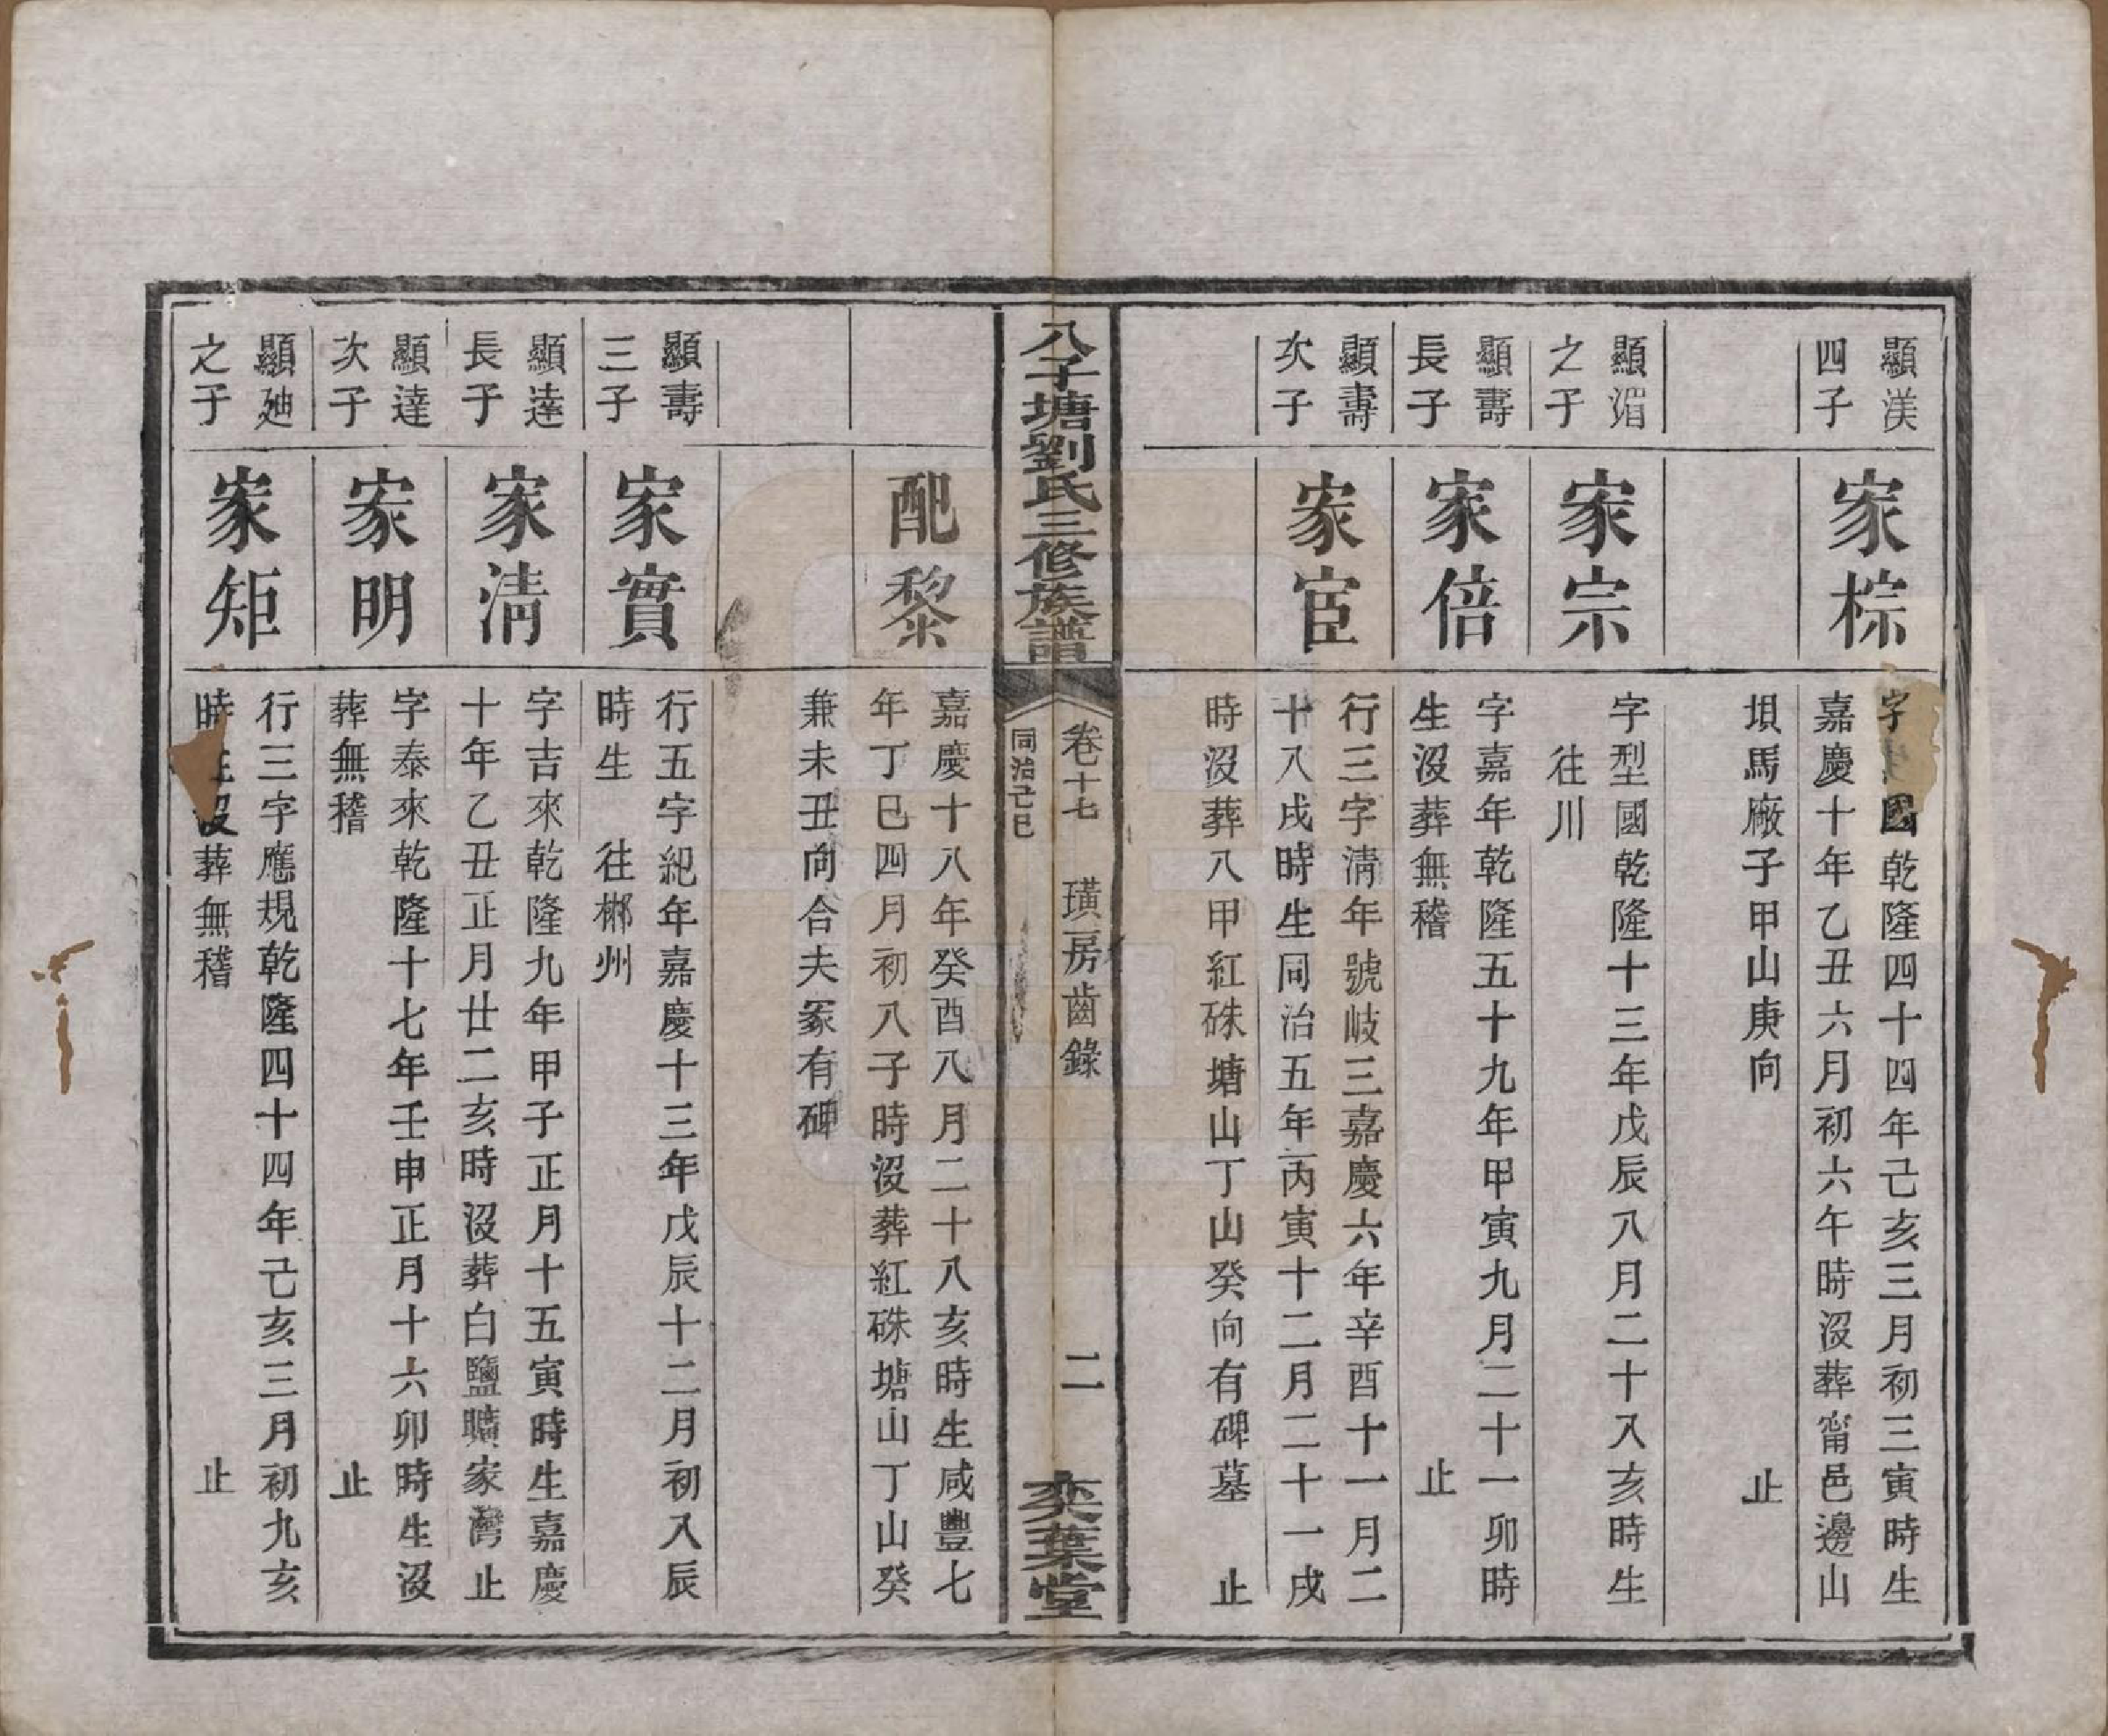 顯渼
四子
家棕
字國乾隆四十四年己亥三月初三寅時生
嘉慶十年乙丑六月初六午時沒葬甯邑邊山
垻馬廠子甲山庚向 止
顯湄
之子
家宗
字型國乾隆十三年戊辰八月二十八亥時生
往川
顯壽
長子
家倍
字嘉年乾隆五十九年甲寅九月二十一卯時
生沒葬無稽 止
顯壽
次子
家宦
行三字清年號岐三嘉慶六年辛酉十一月二
十八戌時生同治五年丙寅十二月二十一戌
時沒葬八甲紅硃塘山丁山癸向有碑墓 止
八子塘劉氏三修族譜
卷十七 璜房齒錄 二
同治己巳
奕葉堂
配黎
嘉慶十八年癸酉八月二十八亥時生咸豐七
年丁巳四月初八子時沒葬紅硃塘山丁山癸
兼未丑向合夫冢有碑
顯壽
三子
家實
行五字紀年嘉慶十三年戊辰十二月初八辰
時生 往郴州
顯達
長子
家清
字吉來乾隆九年甲子正月十五寅時生嘉慶
十年乙丑正月廿二亥時沒葬白鹽曠家灣止
顯達
次子
家明
字泰來乾隆十七年壬申正月十六卯時生沒
葬無稽 止
顯廸
之子
家矩
行三字應規乾隆四十四年己亥三月初九亥
時生沒葬無稽 止